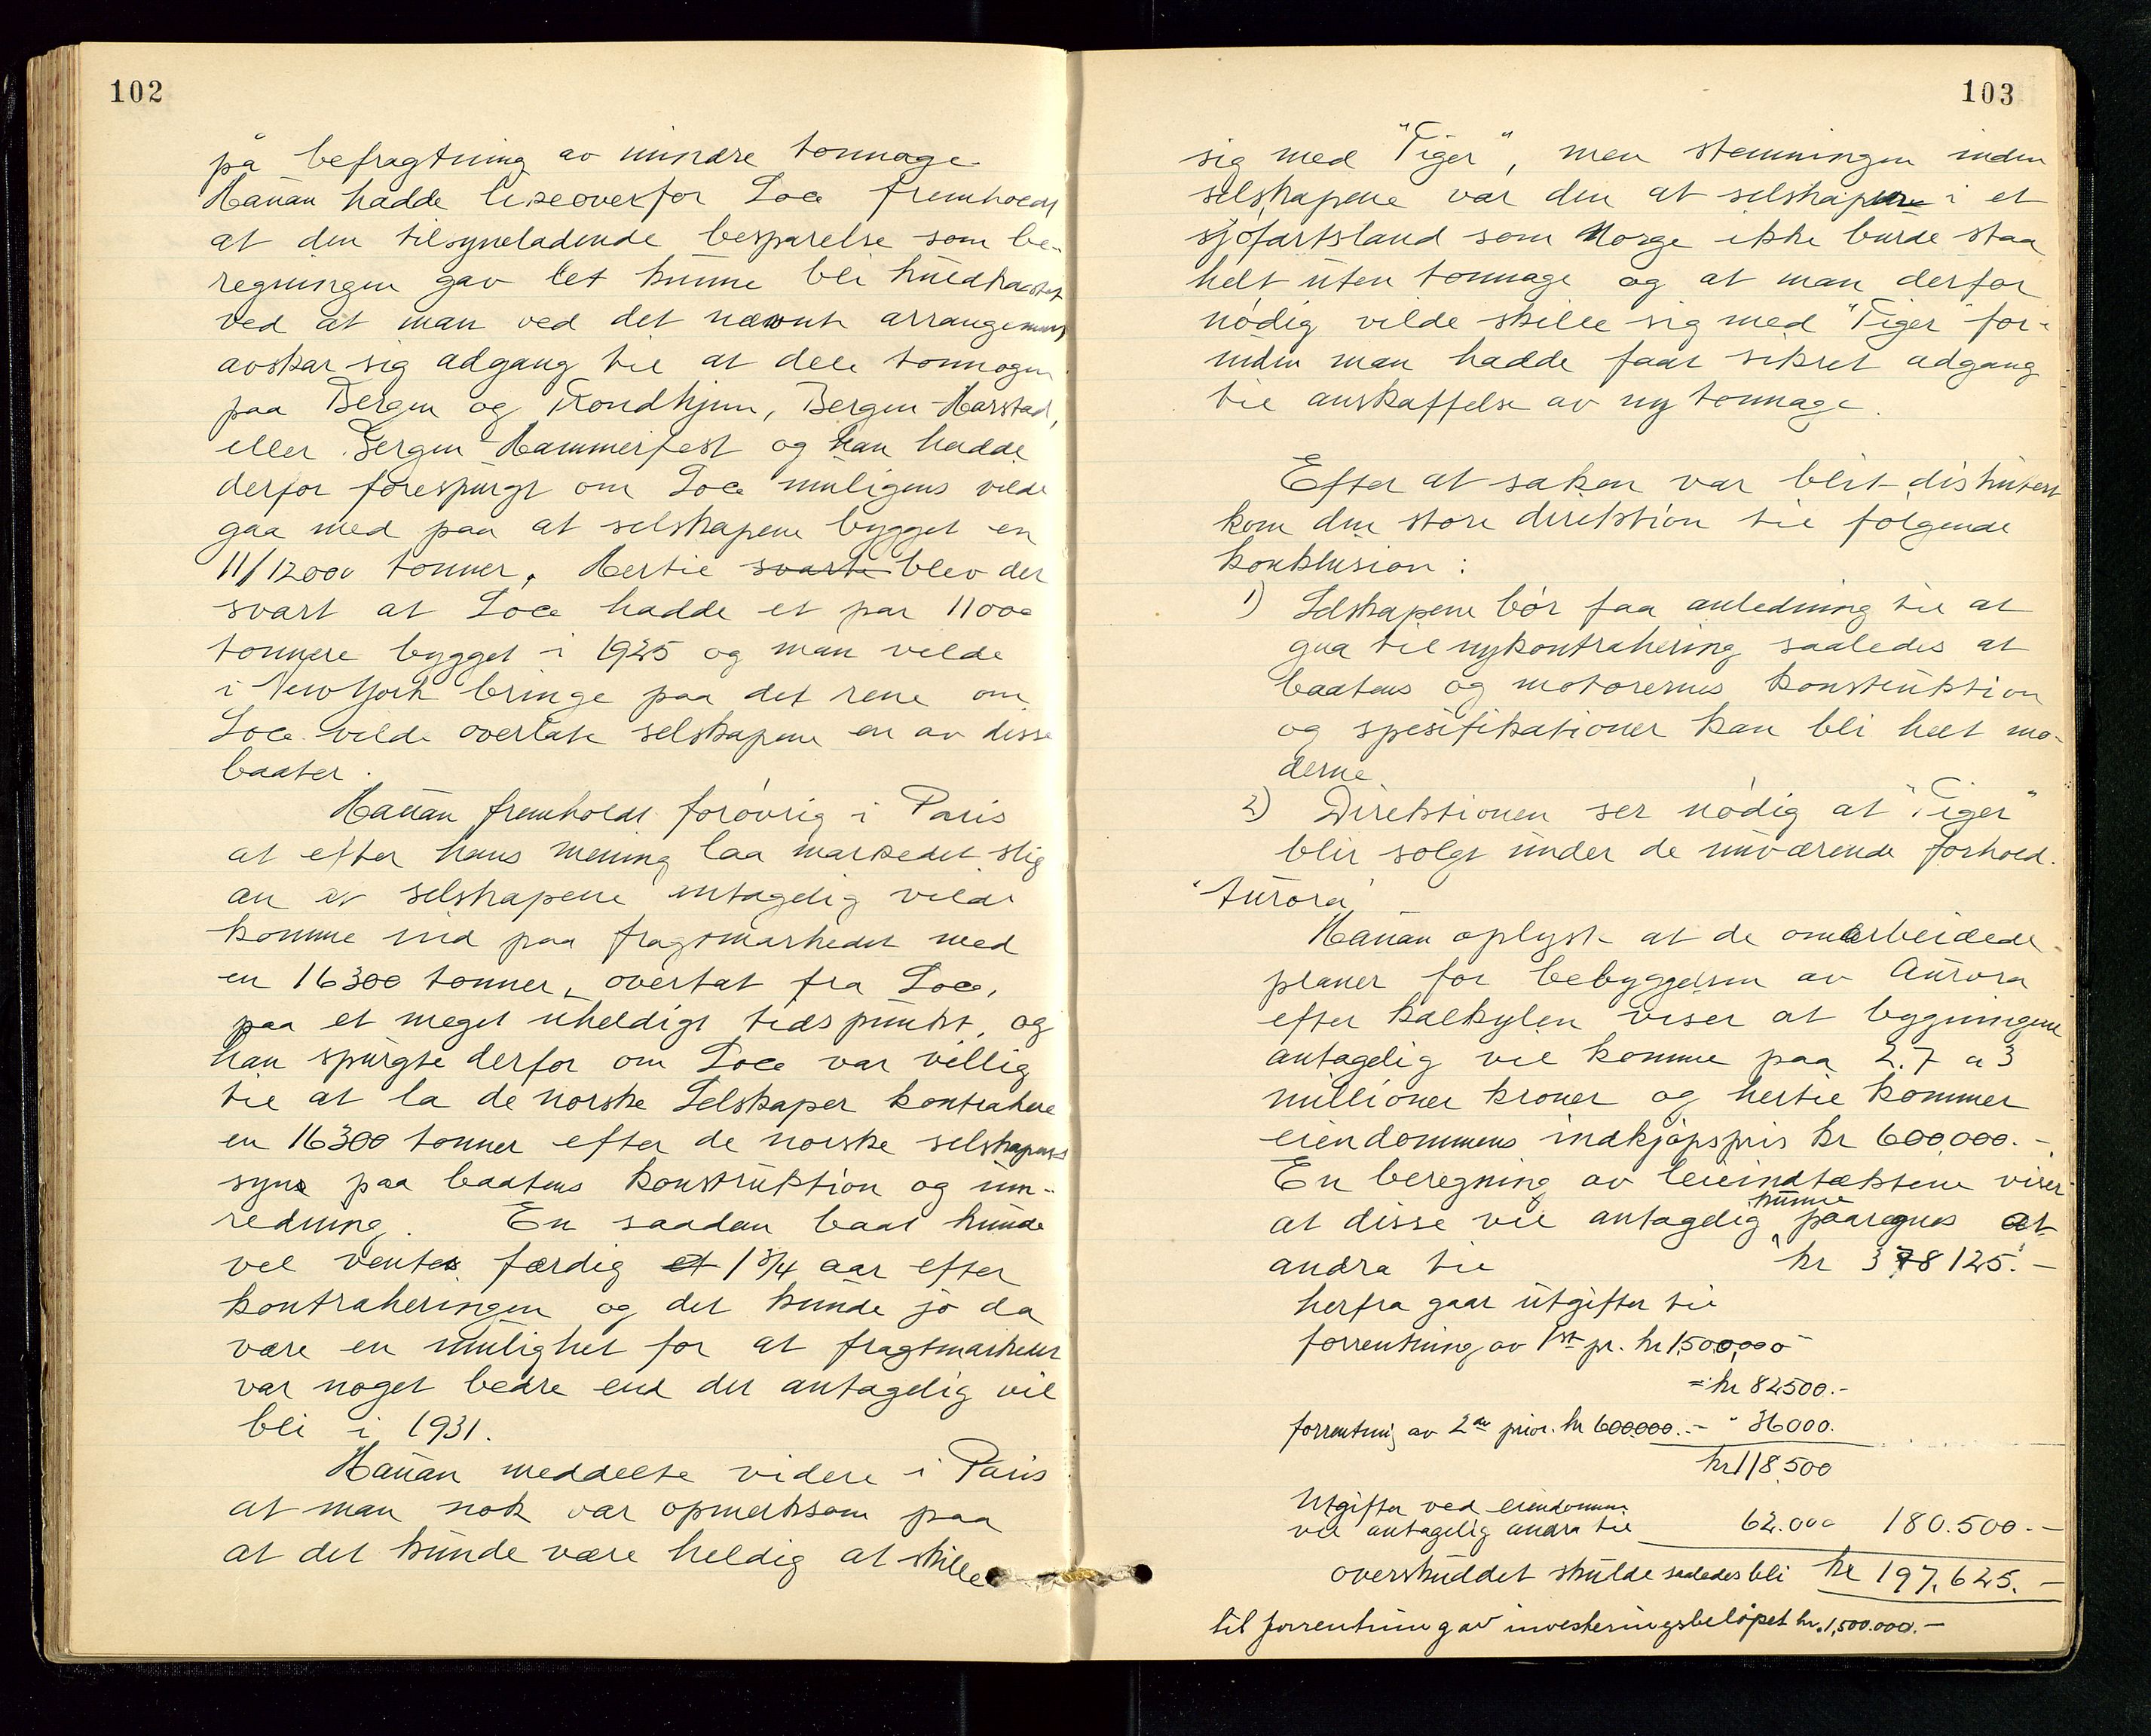 102
på befragtning av mindre tonnage.
Hanan hadde likeoverfor Soca fremholdt
at den tilsyneladende besparelse som be-
regningen gav let kunne bli kuldkastet
ved at man ved det nævnte arrangement
avskar sig adgang til at dele tonnagen
paa Bergen og Trondhjem, Bergen-Harstad,
eller Bergen-Hammerfest og han hadde
derfor forespurgt om Soca muligens vilde
gaa med paa at selskapene bygget en
11/12000 tonner. Hertil svarte blev der
svart at Soca hadde et par 11000
tonnere bygget i 1925 og man vilde
i New York bringe paa det rene om
Soca vilde overlate selskapene en av disse
baater.
Hanan fremholdt forøvrig i Paris
at efter hans mening laa markedet slig
an at selskapene antagelig vilde
komme ind paa fragtmarkedet med
en 16300 tonner, overtat fra Soca,
paa et meget uheldigt tidspunkt, og
han spurgte derfor om Soca var villig
til at la de norske Selskaper kontrahere
en 16300 tonner efter de norske selskapers
syn paa baatens konstruktion og inn-
redning. En saadan baat kunde
vel ventes færdig et 1 3/4 aar efter
kontraheringen og det kunde jo da
være en mulighet for at fragtmarkedet
var noget bedre end det antagelig vil
bli i 1931.
Hanan meddelte videre i Paris
at man nok var opmerksom paa
at det kunde være heldig at skille
103
sig med "Tiger", men stemningen inden
selskapene var den at selskapene i et
sjøfartsland som Norge ikke burde staa
helt uten tonnage og at man derfor
nødig vilde skille sig med "Tiger" for-
inden man hadde faat sikret adgang
til anskaffelse av ny tonnage.
Efter at saken var blit diskutert
kom den store direktion til følgende
konklusion:
1) Selskapene bør faa anledning til at
gaa til nykontrahering saaledes at
baatens og motorernes konstruktion
og spesifikationer kan bli helt mo-
derne
2) Direktionen ser nødig at "Tiger"
blir solgt under de nuværende forhold.
"Aurora"
Hanan oplyste at de omarbeidede
planer for bebyggelsen av Aurora
efter kalkylen viser at bygningene
antagelig vil komme paa 2.7 a 3
millioner kroner og hertil kommer
eiendommens indkjøpspris kr 600,000.-
En beregning av leieindtektene viser
kunne
at disse vil antagelig paaregnes at
andra til kr 378125.-
herfra gaar utgifter til
forrentning av 1st pr. kr 1,500,000
= kr 82500.-
forrentning av 2den prior. kr 600.000.- " 36000.
kr 118.500
Utgifter ved eiendommen
vil antagelig andra til 62.000 180.500.-
overskuddet skulde saaledes bli kr 197.625.-
til forrentning av investeringsbeløpet kr. 1,500.000.-